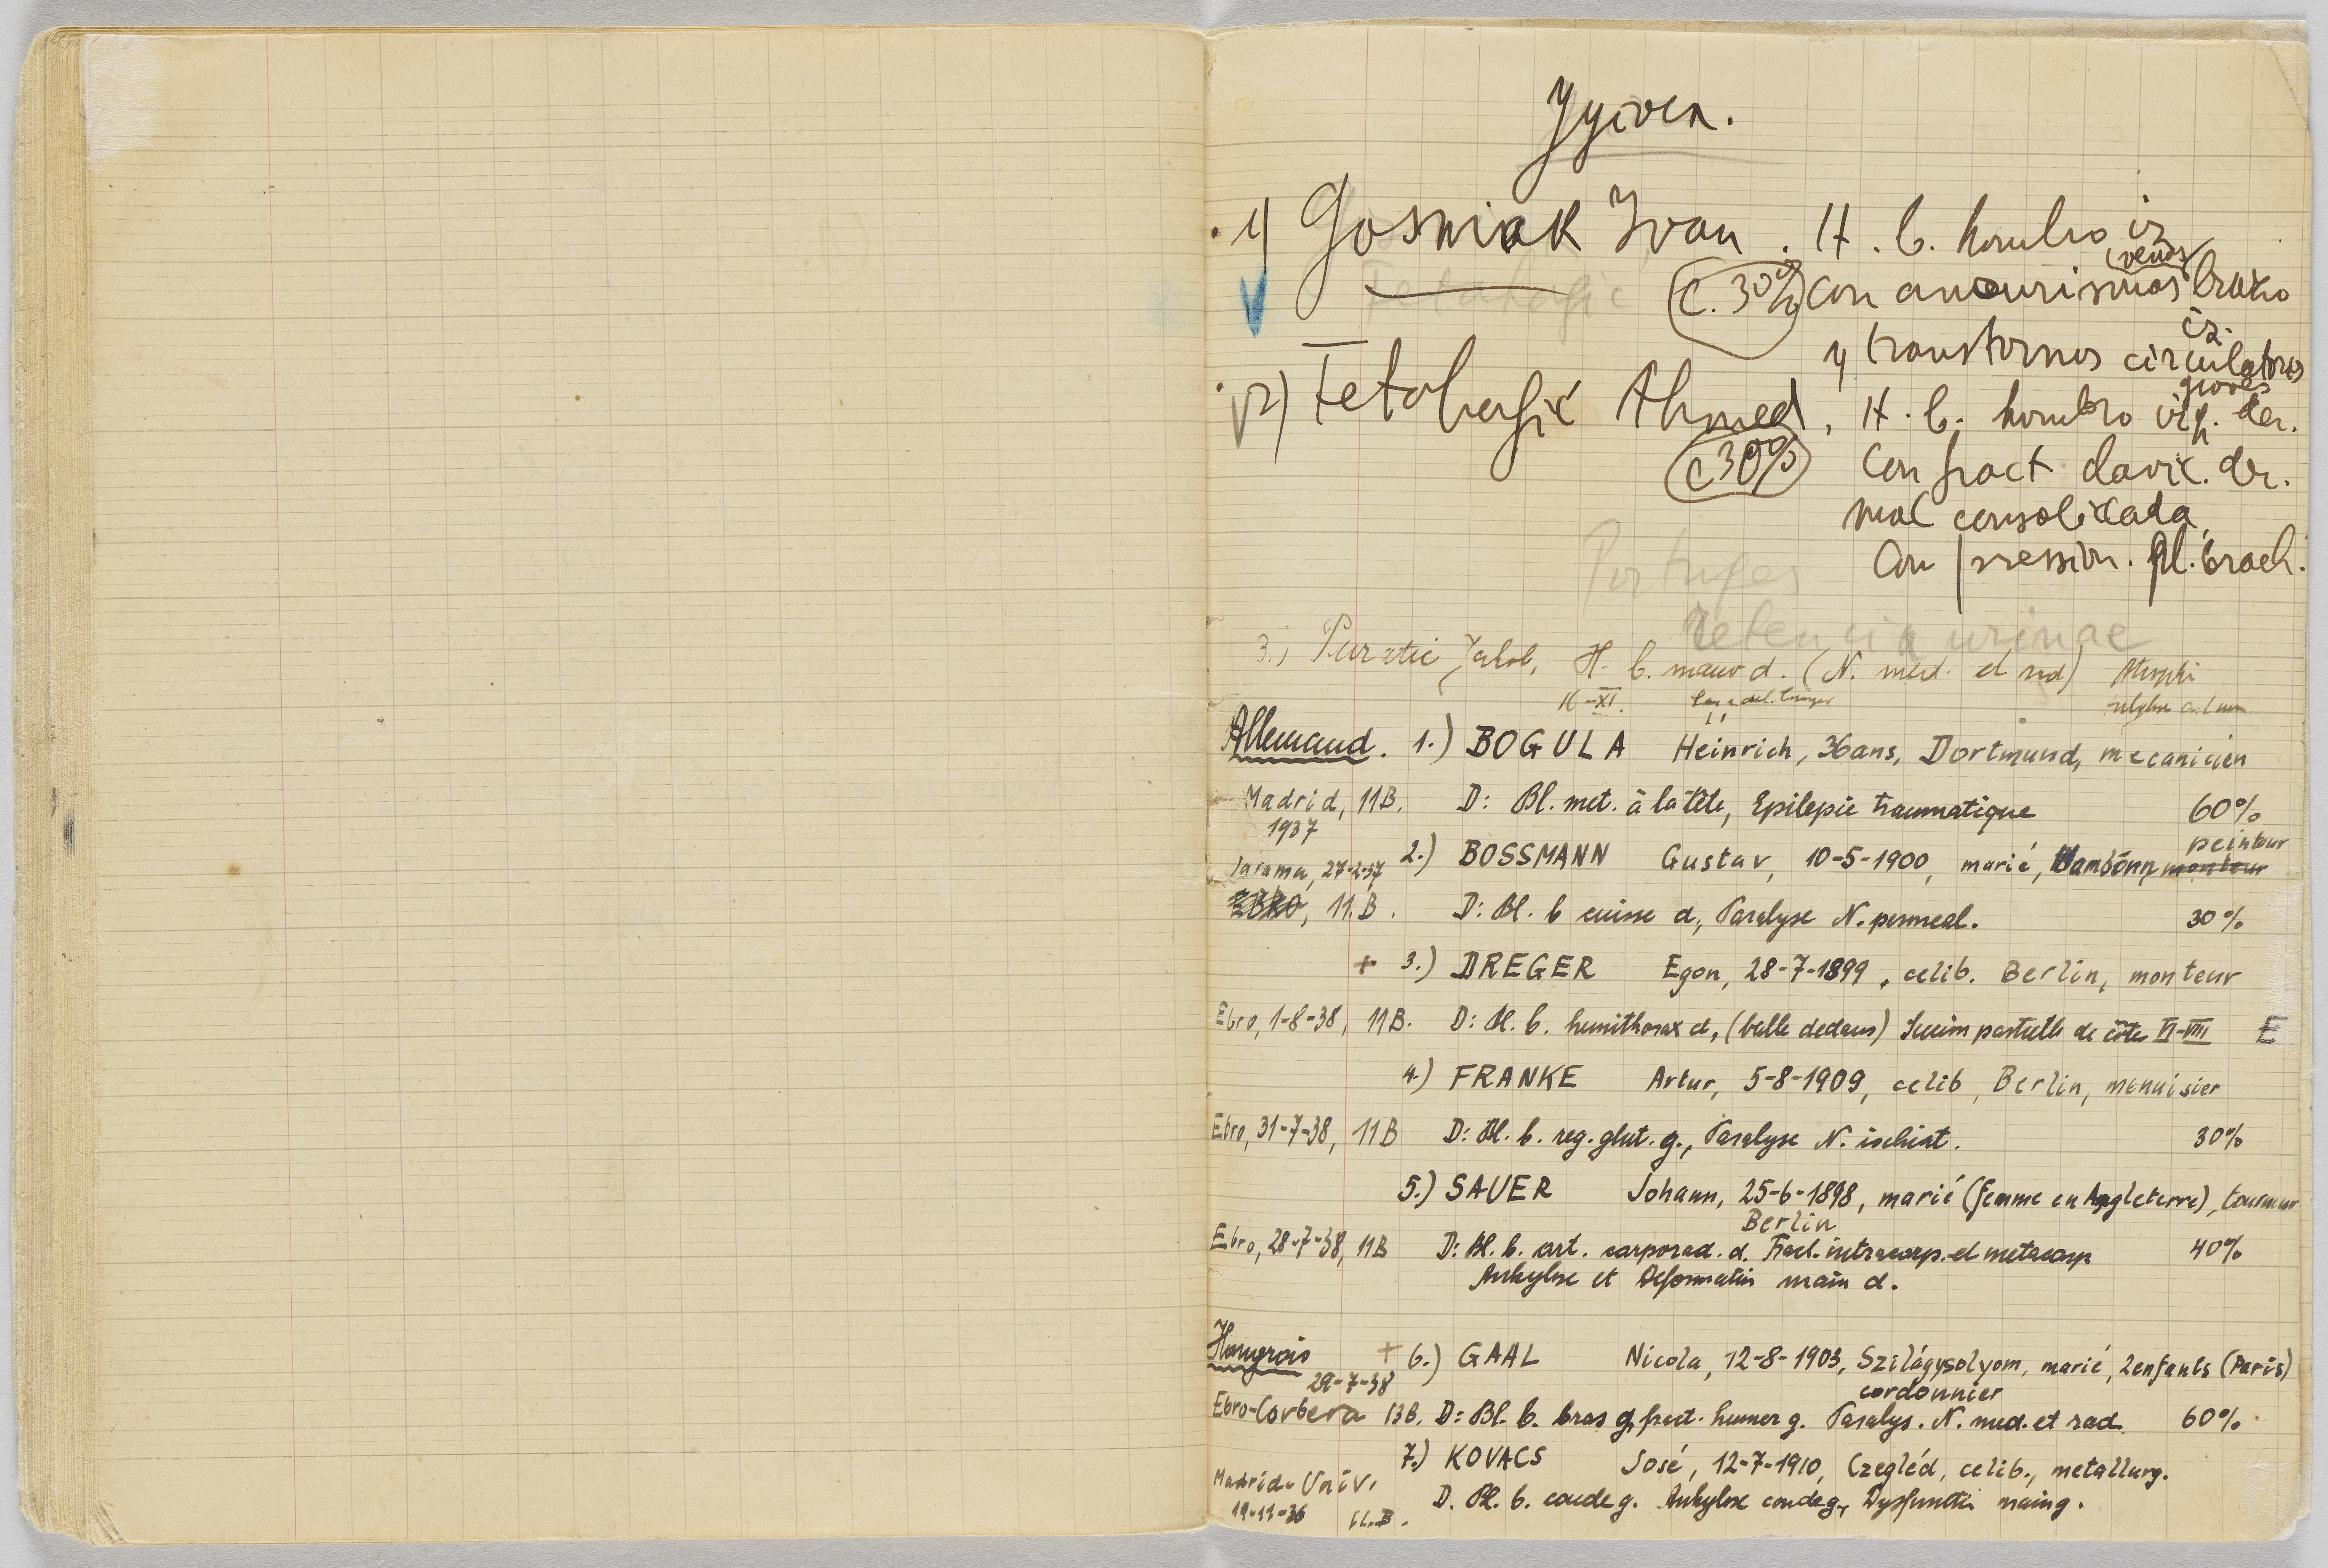 Jyioen.
1) Gosniak Ivan. H. b. hombro iz
(venos)
C. 30% con aneurismas braxio
iz.
y transtornos circulatores
graves
Fetahagic
2) Fetahagić Ahmed, H. b. hombro der.
c 30% con fract clavic. der.
mal consolidada,
Compression. pl. brach.
Portuges
Retencia urinae
3.) Puratic Jakob, H. b. mano d. (N. med. et rad)
16-XI.
Allemand. 1.) BOGULA Heinrich, 36ans, Dortmund, mecanicien
Madrid, 11B. D: Bl. met. à la tête, Epilepsie traumatique 60%
1937
peintur
2.) BOSSMANN Gustav, 10-5-1900, marié, monteur
Jarama, 27-2-37
EBRO, 11.B. D: Bl. b cuisse d, Paralyse N. peroneal. 30%
+ 3.) DREGER Egon, 28-7-1899, celib. Berlin, monteur
Ebro, 1-8-38, 11B. D: Bl. b. hemithorax d, (balle dedans) de côte VI-VIII E
4.) FRANKE Artur, 5-8-1909, celib, Berlin, menuisier
Ebro, 31-7-38, 11B D: Bl. b. reg. glut. g., Paralyse N. ischiat. 30%
5.) SAUER Johann, 25-6-1898, marié (femme en Angleterre), tourneur
Berlin
Ebro, 28-7-38, 11B D: Bl. b. art. carporad. d. Fract. intracarp. et metacarp 40%
Ankylose et Deformation main d.
Hongrois + 6.) GAAL Nicola, 12-8-1903, Szilágysolyom, marié, 2enfants (Paris)
29-7-38 cordonnier
Ebro-Corbera 13B. D: Bl. b. bras g, fract. humer g. Paralys. N. med. et rad 60%
7.) KOVACS José, 12-7-1910, Czegléd, celib., metallurg.
Madrid-Univ. D. Bl. b. coude g. Ankylose coude g, Dysfunctio main g.
19-11-36 11.B.